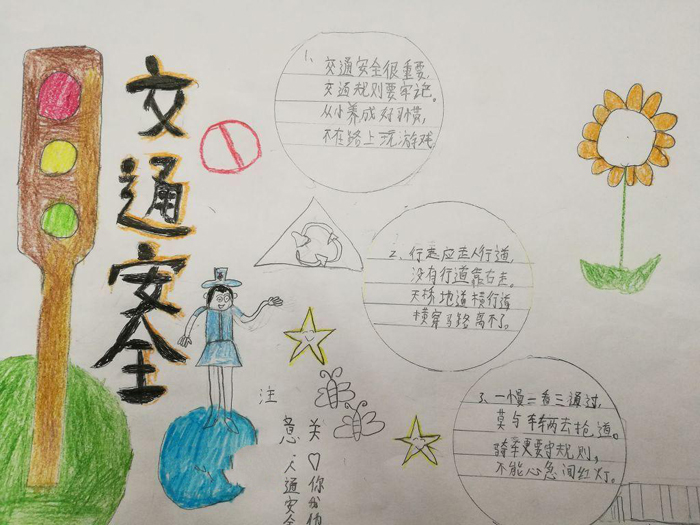 交通安全
1、交通安全很重要,
交通规则要牢记。
从小养成好习惯,
不在路上玩游戏
2、行走应走人行道,
没有行道靠右走。
天桥地道横行道
横穿马路离不了。
3、一慢二看三通过,
莫与车辆去抢道。
骑车更要守规则,
不能心急闯红灯。
注意
交通安全
关♡你我他